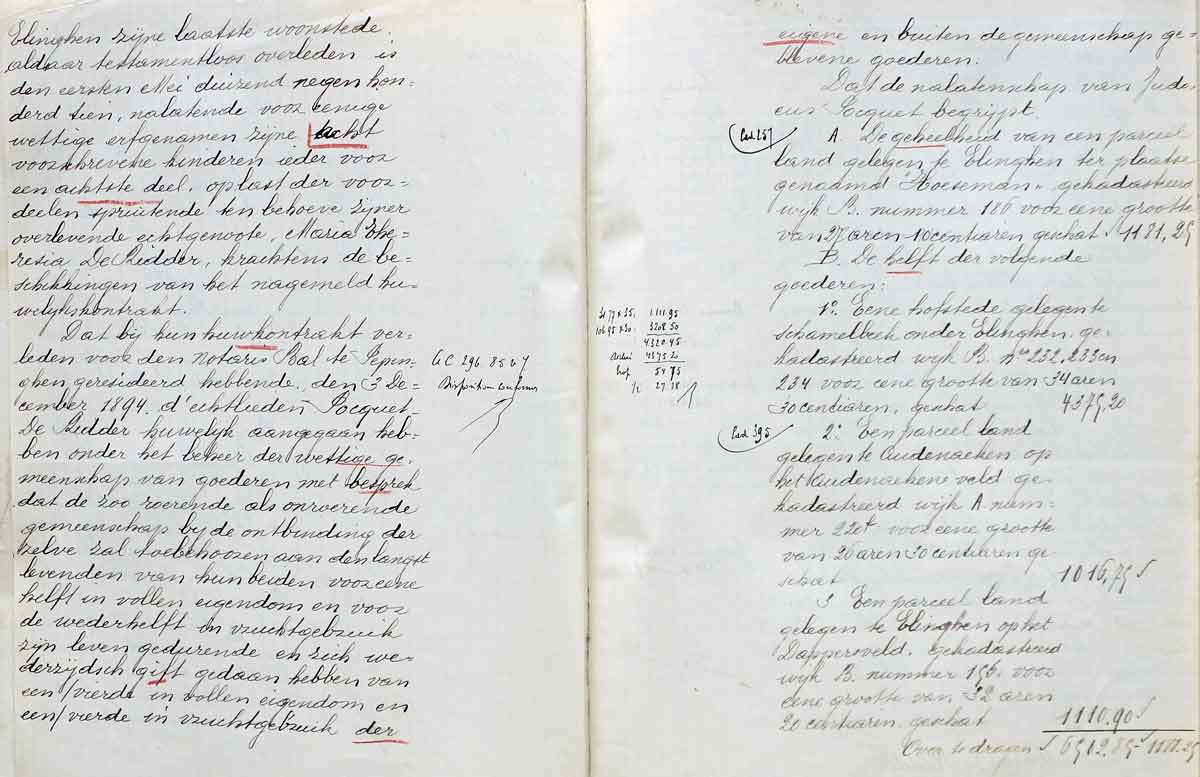 Elinghen zijne laatste woonstede
aldaar testamentloos overleden is
den eersten Mei duizend negen hon-
derd tien, nalatende voor eenige
wettige erfgenamen zijne acht
voorschrevene kinderen ieder voor
een achtste deel, op last der voor=
deelen spruitende ten behoeve zijner
overlevende echtgenoote, Maria The-
resia De Ridder, krachtens de be=
schikkingen van het nagemeld hu-
welijkskontrakt.
Dat bij hun huwkontrakt ver-
leden voor den notaris Bal te Pepin-
ghen geresideerd hebbende, den 3 De-
cember 1894, d'echtlieden Pocquet-
De Ridder huwelijk aangegaan heb-
ben onder het beheer der wettige ge-
meenschap van goederen met besprek
dat de zoo roerende als onroerende
gemeenschap bij de ontbinding der
zelve zal toebehooren aan den langst
levenden van hun beiden voor eene
helft in vollen eigendom en voor
de wederhelft in vruchtgebruik
zijn leven gedurende en zich we-
derzijdsch gift gedaan hebben van
een/vierde in vollen eigendom en
een/vierde in vruchtgebruik der
G C 296 85 v 7
Disposition
eigene en buiten de gemeenschap ge-
blevene goederen.
Dat de nalatenschap van Jude
cus Pocquet begrijpt.
Cad 257
A. De geheelheid van een parceel
land gelegen te Elinghen ter plaatse
genaamd "Hoeseman" gekadasteerd
wijk B. nummer 186 voor eene grootte
van 27 aren 10 centiaren geschat 1181,25
B. De helft der volgende
goederen:
1º. Eene hofstede gelegente
Schamelbeek onder Elinghen, ge-
kadasteerd wijk B. nos 232, 233 en
234 voor eene grootte van 34 aren
30 centiaren, geschat 4375,20
1111.95
3208.50
4320.45
4375.20
54.75
27.38
Cad 395
2º. Een parceel land
gelegen te Audenaeken op
het Audenaekene veld ge-
kadastreerd wijk A num-
mer 220f voor eene grootte
van 26 aren 30 centiaren ge
schat 1016,75
3 Een parceel land
gelegen te Elinghen op het
Dappersveld, gekadasteerd
wijk B. nummer 156, voor
eene grootte van 32 aren
20 centiaren, geschat 1110.90
Over te dragen 6502.85 1181.25